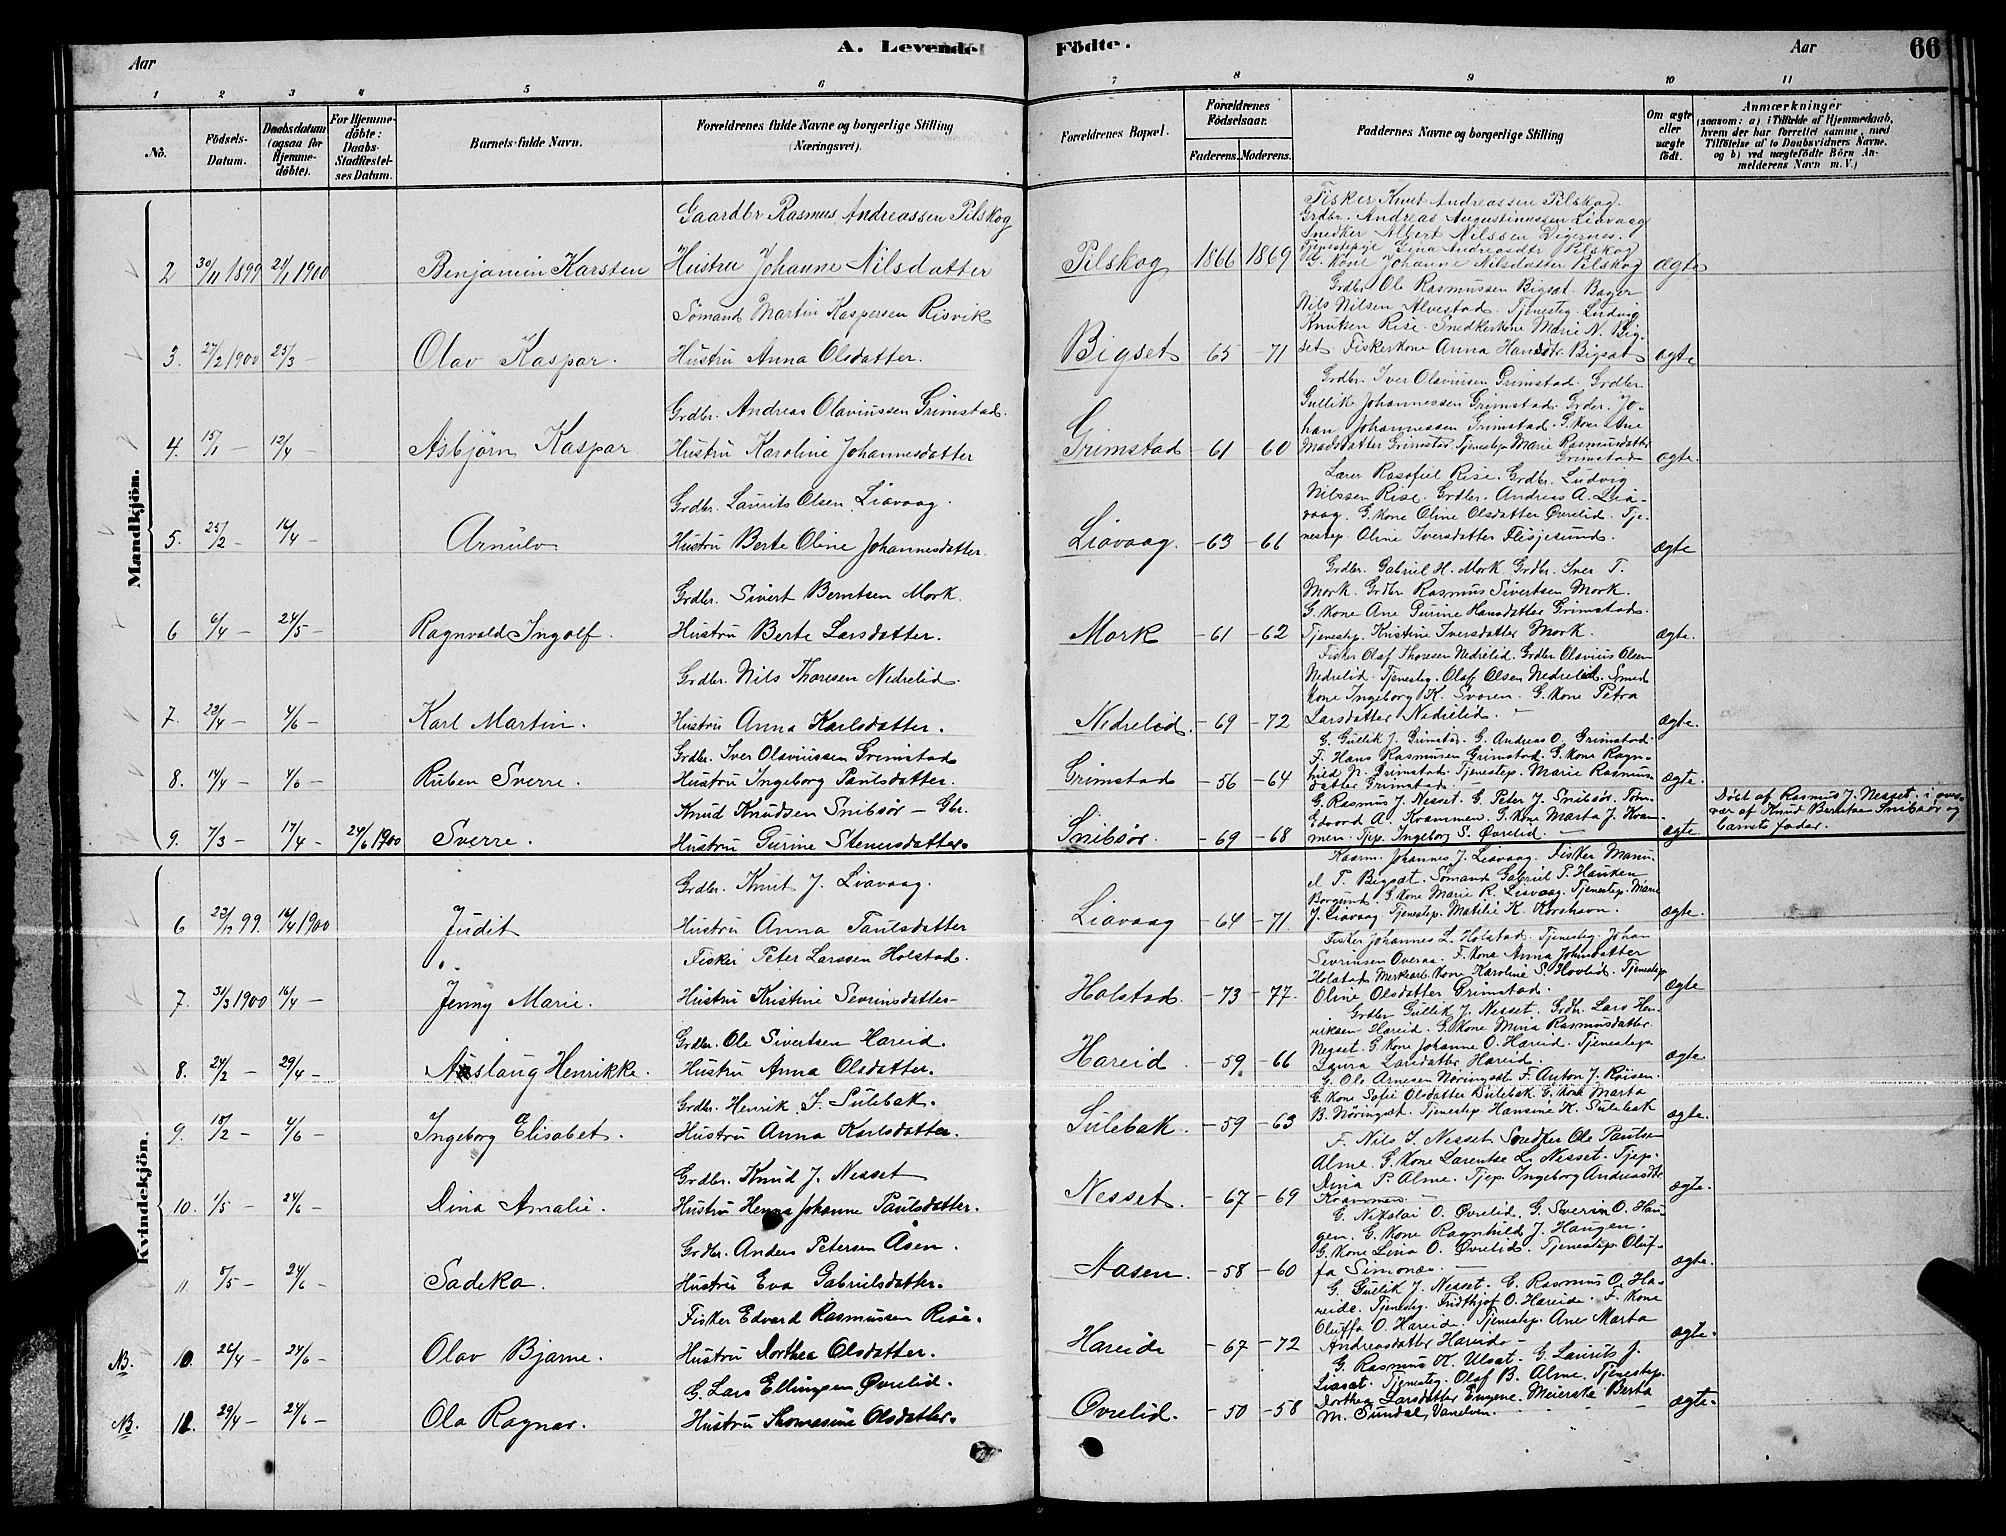 A. Levende Födte.
66
Aar
Aar
1 2 3 4 5 6 7 8 9 10 11
No.
Födsels-Datum.
Daabsdatum (ogsaa for Hjemmedöbte).
For Hjemmedöbte: Daabs-Stadfæstelses Datum.
Barnets fulde Navn.
Forældrenes fulde Navne og borgerlige Stilling (Næringsvei).
Forældrenes Bopæl.
Forældrenes Födselsaar.
Faderens. Moderens.
Faddernes Navne og borgerlige Stilling
Om ægte eller uægte födt.
Anmærkninger
(saasom: a) i Tilfælde af Hjemmedaab, hvem der har forrettet samme, med Tilföielse af to Daabsvidners Navne, og b) ved uægtefödte Börn Anmelderens Navn m. V.)
Mandkjön.
Gaardbr Rasmus Andreassen Pilskog
Fisker Knut Andreassen Pilskog.
Grdbr. Andreas Augustinussen Liavaag
Snedker Albert Nilssen Digernes.
Tjenestepige Gina Andreasdtr Pilskog
2 30/11 1899 21/1 1900 Benjamin Karsten Hustru Johanne Nilsdatter Pilskog 1866 1869 G. Kone Johanne Nilsdatter Pilskog ægte
Sömand Martin Kaspersen Risvik
Grdbr Ole Rasmussen Bigsæt. Bager
Nils Nilsen Alvestad. Tjenestg. Ludvig
Knutsen Rise. Snedkerkone Marie N. Big-
3. 27/2 1900 25/3 – Olav Kaspar. Hustru Anna Olsdatter. Bigset 65 –71 set. Fiskerkone Anna Hansdtr. Bigsæt ægte
Grdbr. Andreas Olaviussen Grimstad.
Grdbr. Iver Olaviusen Grimstad. Grdbr
Gullik Johannessen Grimstad. Grdbr. Jo-
han Johannessen Grimstad. G. Kone Ane
4. 15/1 – 12/4 – Asbjörn Kaspar Hustru Karoline Johannesdatter Grimstad –61 60 Madsdatter Grimstad. Tjenestep. Marie Rasmusdatter Grimstad ægte.
Grdbr. Laurits Olsen Liavaag.
Lærer Rasofiel Rise. Grdbr. Ludvig
Nilssen Rise. Grdbr. Andreas A. Lia-
vaag. G. Kone Oline Olsdatter Øvrelid. Tje-
5. 25/2 – 16/4 – Arnulv Hustru Berte Oline Johannesdatter. Liavaag. –63 –66 nestep. Oline Iversdatter Flisjesund. ægte
Grdbr. Sivert Berntsen Mork.
Grdbr. Gabriel H. Mork. Grdbr. Iver T.
Mork. Grdbr Rasmus Sivertsen Mork.
G. Kone Ane Gurine Hansdatter Grimstad.
6 6/4 – 24/5 – Ragnvald Ingolf. Hustru Berte Larsdatter. Mork –61 –62 Tjenestep. Kristine Iversdatter Mork. ægte.
Grdbr. Nils Thoresen Nedrelid.
Fisker Olaf Thoresen Nedrelid. Grdbr Olavius Olsen
Nedrelid. Tjenestg. Olaf Olsen Nedrelid. Smed
Kone Ingeborg K. Svoren. G. Kone Petra
7. 23/4 – 4/6 – Karl Martin. Hustru Anna Karlsdatter. Nedrelid. –69 –72 Larsdatter Nedrelid. – ægte.
Grdbr. Iver Olaviussen Grimstad
G. Gullik J. Grimstad. G. Andreas O. Grimstad.
F. Hans Rasmussen Grimstad. G. Kone Ragn-
8. 14/4 – 4/6 – Ruben Sverre. Hustru Ingeborg Paulsdatter. Grimstad –56 –64 hild N. Grimstad. Tjenestep. Marie Rasmus-
datter Grimstad. ægte.
Knud Knudsen Snibsør – Gbr.
G. Rasmus J. Nesset. G. Peter J. Snibsør. Töm.
Edvard A. Krammen. G. Kone Marta J. Kram-
9. 7/3 – 17/4 – 24/6 1900 Sverre. Hustru Gurine Stenersdatter. Snibsør. –69 –68 men. Tjep. Ingeborg S. Øvrelid. – ægte
Døbt af Rasmus J. Nesset i over-
vær af Knud Berntsen Snibsør og
barnets fader.
Kvindekjön.
Grdbr. Knut J. Liavaag.
Kaarm. Johannes J. Liavaag. Fisker Manu-
el T. Bigsæt. Sömand Gabriel P. Hauken
Borgund. G. Kone Marie R. Liavaag. Tjenestep. Marie
6 23/12 99. 16/4 1900 Judit Hustru Anna Paulsdatter Liavaag –64 –71. J. Liavaag Tjenestep. Matilie K. Korshavn. ægte.
Fisker Peter Larssen Holstad.
Fisker Johannes L. Holstad. Tjenestg. Johan
Sevrinsen Overaa. F. Kone Anna Johnsdatter
Holstad. Merkearb. Kone Karoline S. Hovlid. Tjenestep.
7. 31/3 1900 16/4 – Jenny Marie. Hustru Kristine Sevrinsdatter – Holstad. –73 –77. Oline Olsdatter Grimstad. ægte
Grdbr. Ole Sivertsen Hareid.
Grdbr Gullik J. Nesset. Grdbr. Lars Hen-
riksen Hareid. G. Kone Mina Rasmusdatter
Nesset. G. Kone Johanne O. Hareid. Tjenestep.
8. 24/2 – 29/4 – Aaslaug Henrikke. Hustru Anna Olsdatter. Hareid –59. –66 Laura Larsdatter Hareid. ægte
Grdbr. Henrik I. Sulebak.
G. Ole Arnesen Nöringset. F. Anton J. Röisen.
G. Kone Sofie Olsdatter Sulebak. G. Kone Marta
9. 18/2 – 4/6 – Ingeborg Elisabet. Hustru Anna Karlsdatter. Sulebak. –59 –63 B. Nöringsæt. Tjenestep. Hansine K. Sulebak ægte.
Grdbr. Knud J. Nesset
F. Nils J. Nesset Snedker Ole Paulsen
Alme. G. Kone Larentse L. Nesset. Tjep.
Dina P. Alme. Tjep. Ingeborg Andreasdtr
10. 1/5 – 24/6 – Dina Amalie. Hustru Henna Johanne Paulsdatter. Nesset. –67 –69 Krammen – ægte.
Grdbr. Anders Petersen Åsen.
G. Nikolai O. Øvrelid. G. Sverin O. Hau-
gen. G. Kone Ragnhild J. Haugen.
G. Kone Lina O. Øvrelid. Tjenestep. Oluf-
11. 5/5 – 24/6 – Sadeka. Hustru Eva Gabrielsdatter. Aasen. –58 –60 fa Simonæs. – ægte.
Fisker Edvard Rasmussen Rise.
G. Gullik J. Nesset. G. Rasmus O. Ha-
reide. Tjenestg. Fridthjof O. Hareide. F. Kone
Oluffa O. Hareide. Tjenestep. Ane Marta
NB. 10. 26/4 – 24/6 – Olav Bjarne. Hustru Dorthea Olsdatter. Hareide –67 –72 Andreasdatter Hareide – ægte.
G. Lars Ellingsen Øvrelid.
G. Rasmus K. Ulsæt. G. Laurits J.
Liaset. Tjenestg. Olaf B. Alme. Tjenestep.
Dorthea Larsdatter Eugene. Meierske Berta
NB. 11. 29/4 – 24/6 – Ola Ragnar. Hustru Thomasine Olsdatter. Øvrelid. –50 –58 M. Sundal, Vanelven. ægte.